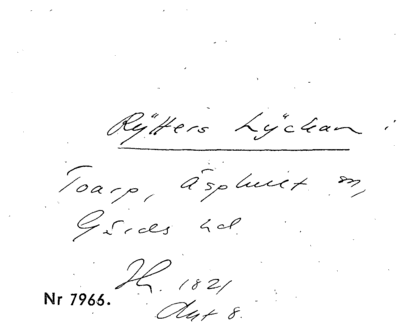 Rÿtters Lÿckan i
Toarp, Äsphult sn,
Gärds hd
Jh. 1821
Akt 8.
Nr 7966.